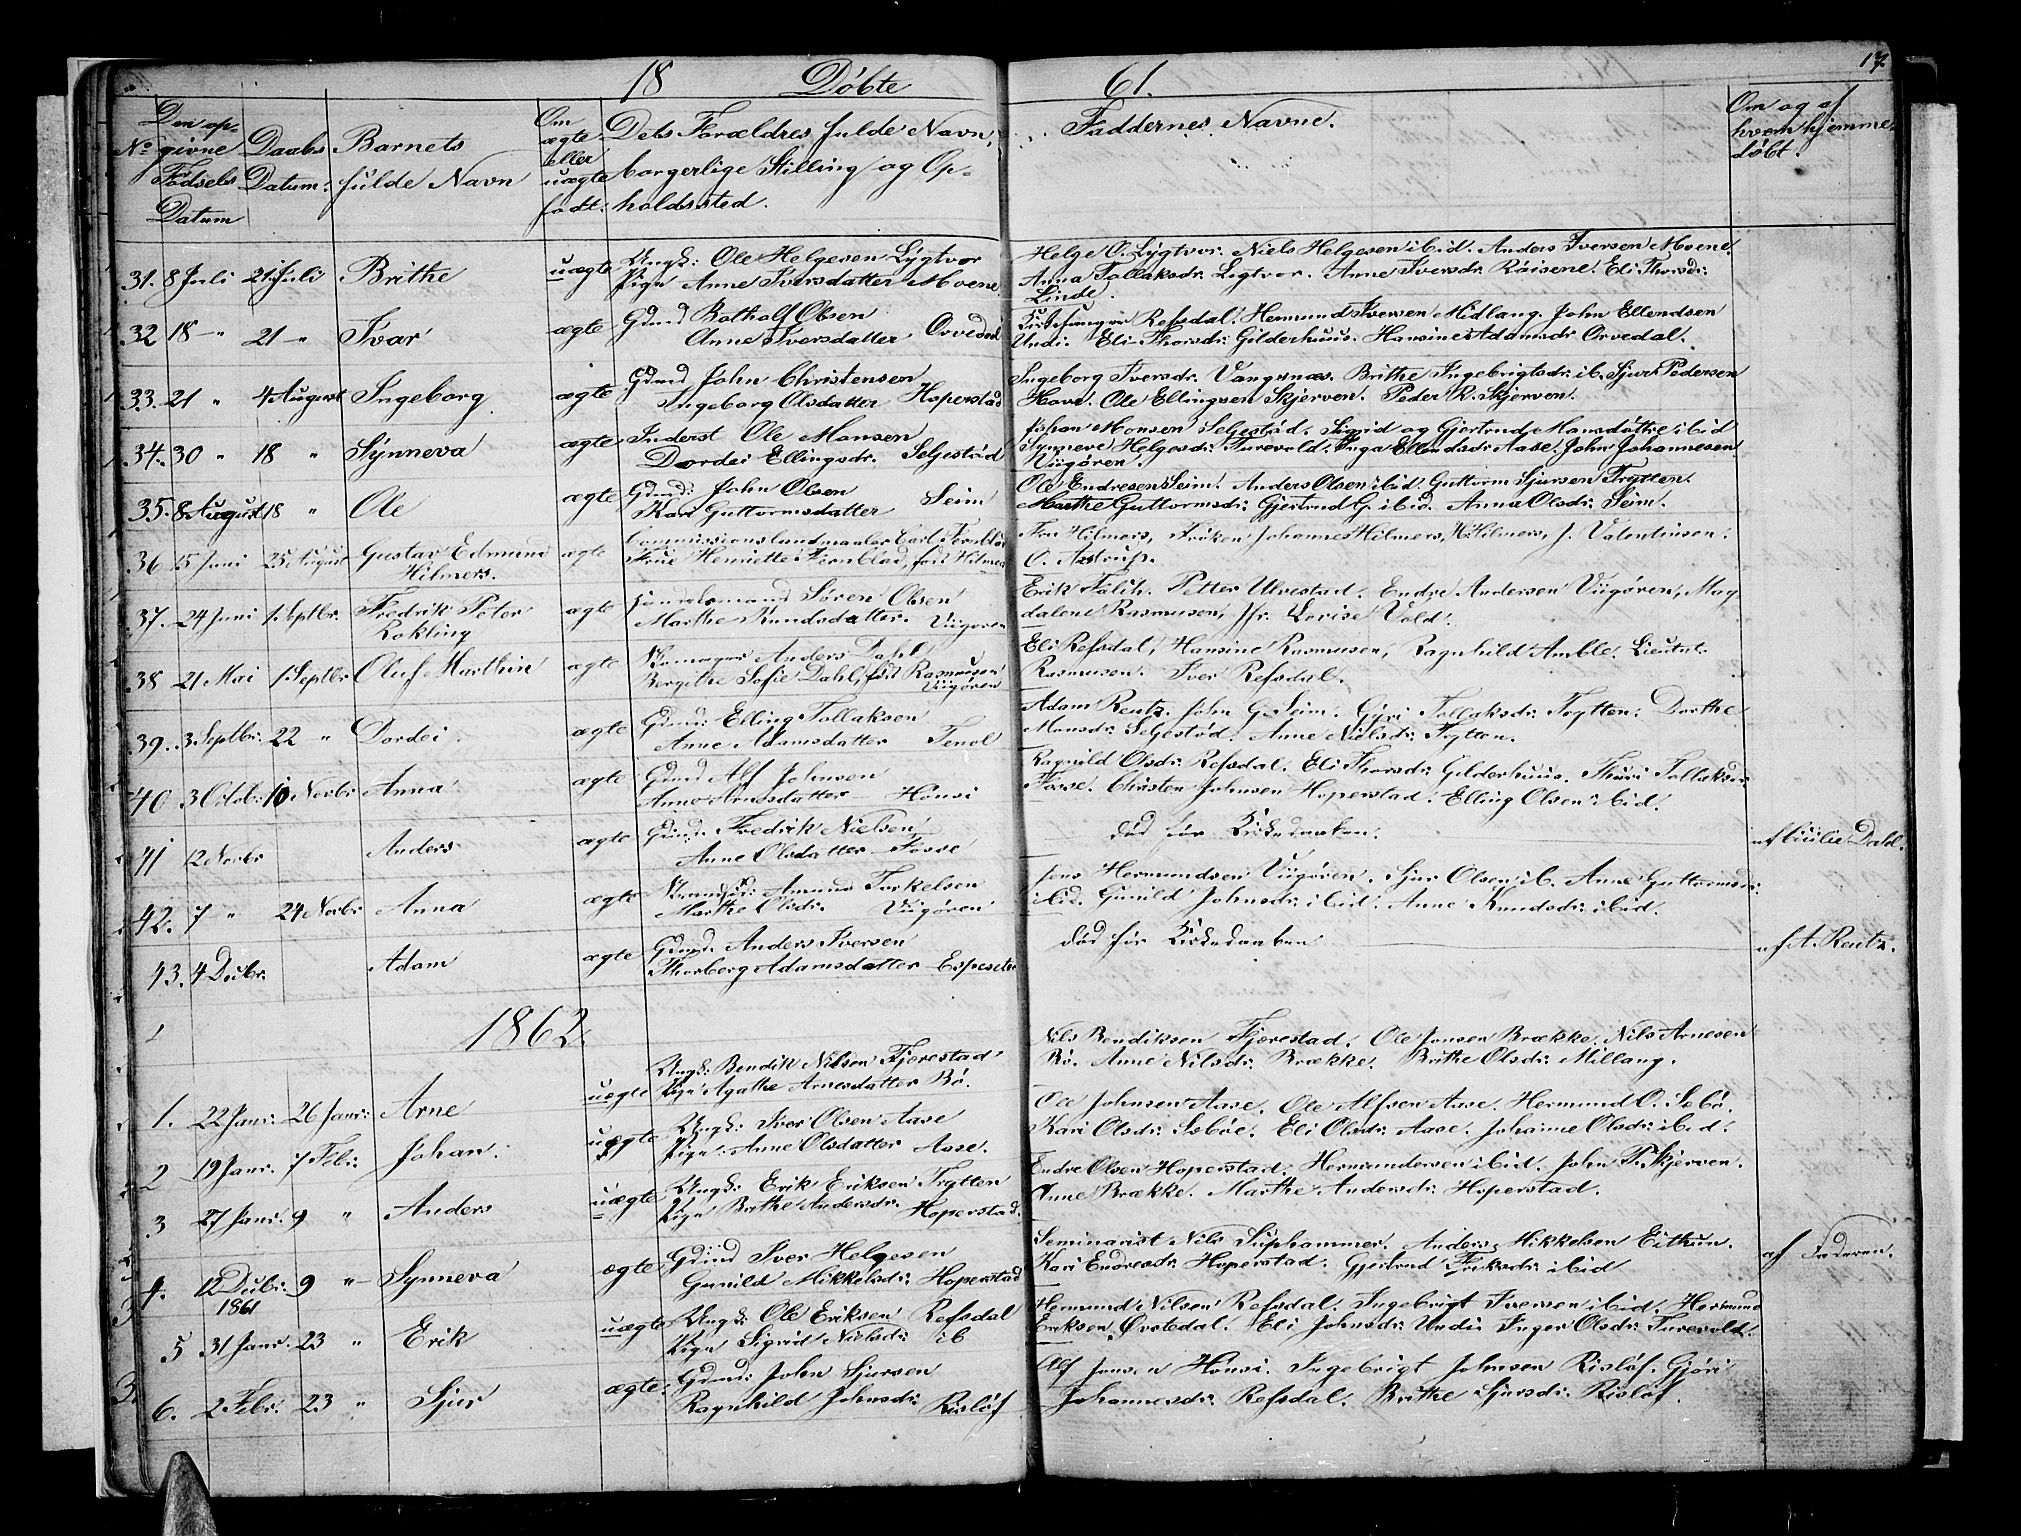 18 Döbte 61. 17.
No Den opgivne Födsels Datum
Daabs Datum:
Barnets fulde Navn
Om ægte eller uægte født:
Dets Forældres fulde Navn, borgerlige Stilling og Opholdssted.
Faddernes Navne.
Om og af hvem hjemmedöbt.
31. 8 Juli 21 Juli Brithe uægte Ungk: Ole Helgesen Lÿgtvor
Pige Anne Iversdatter Moene
Helge O. Lÿgtvor. Niels Helgesen ibid. Anders Iversen Moene.
Anna Tollaksdr: Ligtvor. Anne Iversdr: Röisene. Eli Thorsdr:
Linde.
32 18 - " 21 - " Ivar ægte Gdmd Botholf Olsen
Anne Iversdatter Orvedal
Kirkesanger Refsdal. Hermund Iversen Midlang. John Ellendsen
Undi. Eli Thorsdr: Gilderhuus. Hansine Adamsdr Orvedal.
33. 21 " 4 August Ingeborg ægte Gdmd John Christensen
Ingeborg Olsdatter Hoperstad
Ingeborg Iversdr. Vangsnæs. Brithe Ingebrigtsdr: ib. Sjur Pedersen
Hove. Ole Ellingsen Skjerven. Peder R. Skjerven.
34. 30 " 18 " Sÿnneva ægte Inderst Ole Monsen
Dordei Ellingsdr. Seljestöd
Johan Monsen Seljestöd. Sigrid og Gjertrud Monsdöttre ibid
Synneve Helgesdr: Turevold. Inga Ellendsdr Aase. John Johannesen
Viigören.
35. 8 August 18 " Ole ægte Gdmd: John Olsen
Kari Guttormsdatter Seim
Ole Endresen Seim. Anders Olsen ibid. Guttorm Sjursen Trytten.
Marthe Guttormsdr: Gjertrud G. ibid. Anna Olsdr: Seim.
36 15 Juni 25 August Gustav Edmund
Hilmers. ægte Commissionslandmaaler Carl Fernblad
Frue Henriette Fernblad, född Hilmers
Fru Hilmers, Fröken Johannes Hilmers, H. Hilmers, J. Valentinsen.
O. Astrup.
37. 24 Juni 1. Septbr. Fredrik Peter
Rokling ægte Handelsmand Sören Olsen
Marthe Knudsdatter. Viigören
Erik Falch. Petter Ulvestad. Endre Andersen Viigören, Mag
dalene Rasmusen, Jfr. Lovise Vold.
38 21 Mai 1. Septbr Oluf Marthin ægte Anders Dahl
Bergithe Sofie Dahl, föd Rasmusen
Viigören
Eli Refsdal, Hansine Rasmusen, Ragnhild Amble. Lieutnt.
Rasmusen. Iver Refsdal.
39. 3 Septbr. 22 " Dordei ægte Gdmd: Elling Tollaksen
Anne Adamsdatter Tenol
Adam Reutz. John G. Seim. Gjöri Tollaksdr: Trytten: Dorthe
Monsdr: Seljestöd. Anne Nielsdr: Trytten.
40 3 Octobr: 10 Novbr Anna ægte Gdmd Alf Johnsen
Anne Arnesdatter Hönsi
Ragnild Olsdr: Refsdal. Eli Thorsdr: Gilderhuus. Thuri Tollaksdr:
Fosse. Christen Johnsen Hoperstad. Elling Olsen ibid.
41 12 Novbr Anders ægte Gdmd. Fredrik Nielsen
Anne Olsdatter Fosse
död för Kirkedaaben. af Cicilie Dahl.
42. 7 " 24 Novbr Anna ægte Amund Torkelsen
Marthe Olsdr. Viigören
Jens Hermundsen Viigören. Sjur Olsen ib. Anne Guttormsdr:
ibid. Gunild Johnsdr: ibid. Anne Knudsdr: ibid.
43. 4 Decbr. Adam ægte Gdmd. Anders Iversen
Thorberg Adamsdatter Espesete
död för Kirkedaaben af A. Reutz.
1862.
1. 22 Janr: 26 Janr: Arne uægte Ungk: Bendik Nilsen Fjærestad
Pige Agathe Arnesdatter Bö.
Nils Bendiksen Fjærestad. Ole Jonsen Brække. Nils Arnesen
Bö. Anne Nilsdr: Brække. Brithe Olsdr: Millang.
2 19 Janr. 7 Febr. Johan. uægte Ungk: Iver Olsen Aase
Pige: Anne Olsdatter Aase.
Ole Johnsen Aase. Ole Alfsen Aase. Hermund O. Sæbö.
Kari Olsdr: Sæböe. Eli Olsdr: Aase. Johanne Olsdr: ibid.
3 27 Janr. 9 " Anders uægte Ungk: Erik Eriksen Trytten
Pige Brithe Andersdr: Hoperstad.
Endre Olsen Hoperstad. ibid. John P. Skjerven.
Anne Brække. Marthe Andersdr: Hoperstad.
4. 12 Decbr. 9 " Synneva ægte Gdmd Iver Helgesen
1861 Gunild Mikkelsdr: Hoperstad
Seminarist Nils Süphammer. Anders Mikkelsen Eithun.
Kari Endresdr: Hoperstad. Gjertrud Eriksdr: ibid af Faderen.
5 31 Janr. 23 " Erik uægte Ungk: Ole Eriksen Refsdal
Pige Sigrid Nielsdr: ib
Hermund Nilsen Refsdal. Ingebrigt Iversen ibid. Hermund
Eriksen Övstedal. Eli Johnsdr: Undi. Inger Olsdr: Turevold.
6. 2 Febr. 23 " Sjur ægte. Gdmd: John Sjursen
Ragnhild Johnsdr: Rislöf
Alf Jonsen Hönsi. Ingebrigt Johnsen Rislöf. Gjöri
Johannesdr: Refsdal. Brithe Sjursdr: Rislöf.